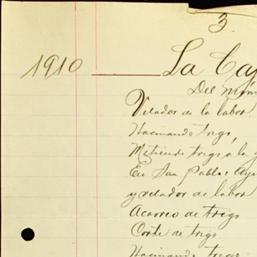 3.
1910 La Ca
Del m
Velador de la labor
Haciendo trigo,
Metiendo trigo a la
En San Pablo,
y velador de labor
Acarreo de trigo
Corte de trigo
Haciendo trigo